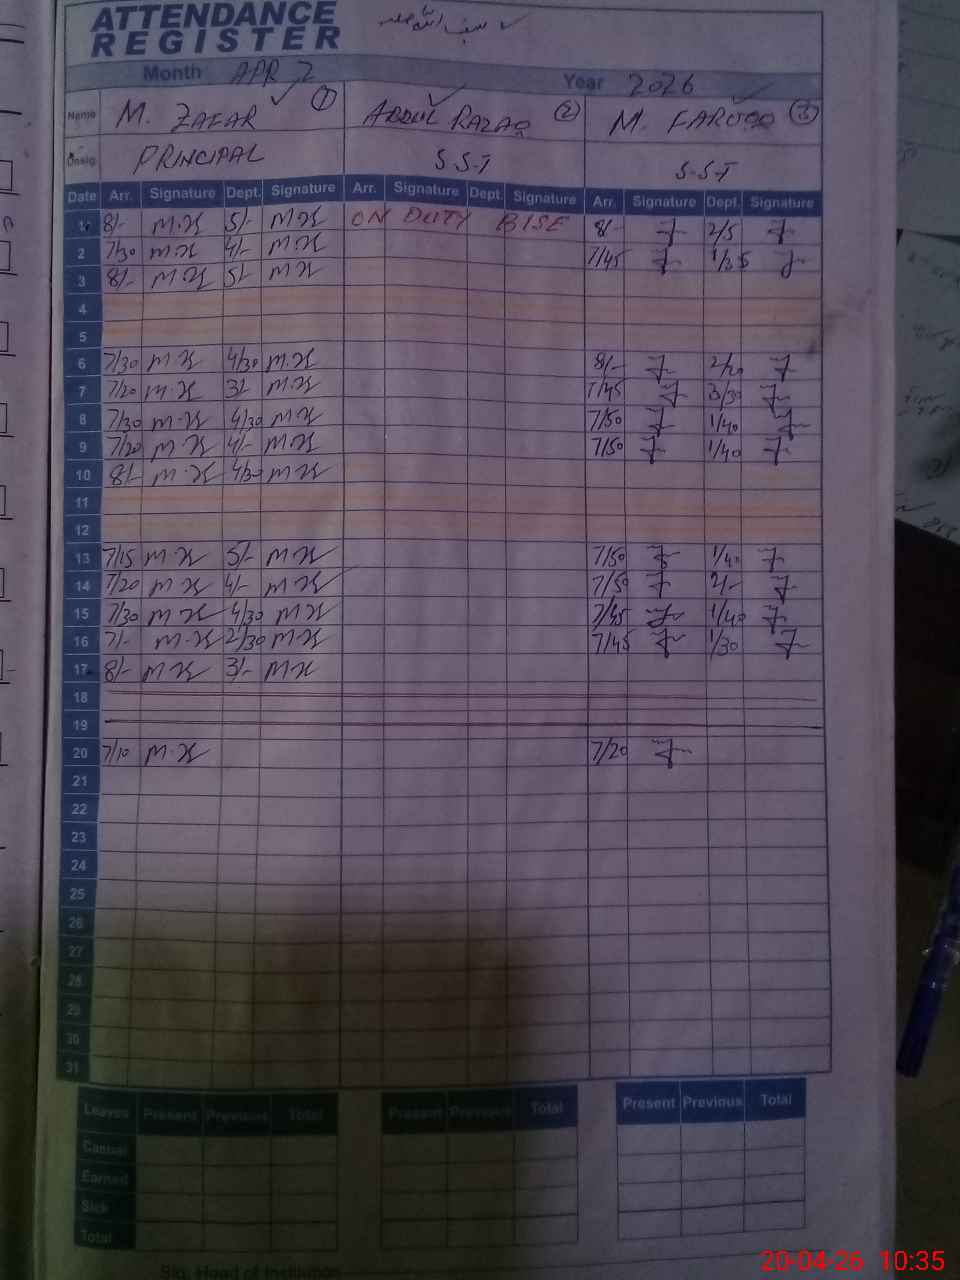 ATTENDANCE
REGISTER
Month APR Year 2026
Name M. ZAFAR ① ABDUL RAZAQ ② M. FAROOQ ③
Desig. PRINCIPAL S.S.T S.S.T
Date Arr. Signature Dept. Signature Arr. Signature Dept. Signature Arr. Signature Dept. Signature
1 8/- 5/- ON DUTY BISE 8/- 2/5
2 7/30 4/- 7/45 1/35
3 8/- 5/-
4
5
6 7/30 4/30 8/- 2/20
7 7/20 3/- 7/45 3/30
8 7/30 4/30 7/50 1/40
9 7/20 4/- 7/50 1/40
10 8/- 4/30
11
12
13 7/15 5/- 7/50 1/40
14 7/20 4/- 7/50 2/-
15 7/30 4/30 7/45 1/40
16 7/- 2/30 7/45 1/30
17 8/- 3/-
18
19
20 7/10 7/20
21
22
23
24
25
26
27
28
29
30
31
Leaves Present Previous Total Present Previous Total Present Previous Total
Casual
Earned
Sick
Total
Sig. Head of Institution
20-04-26 10:35